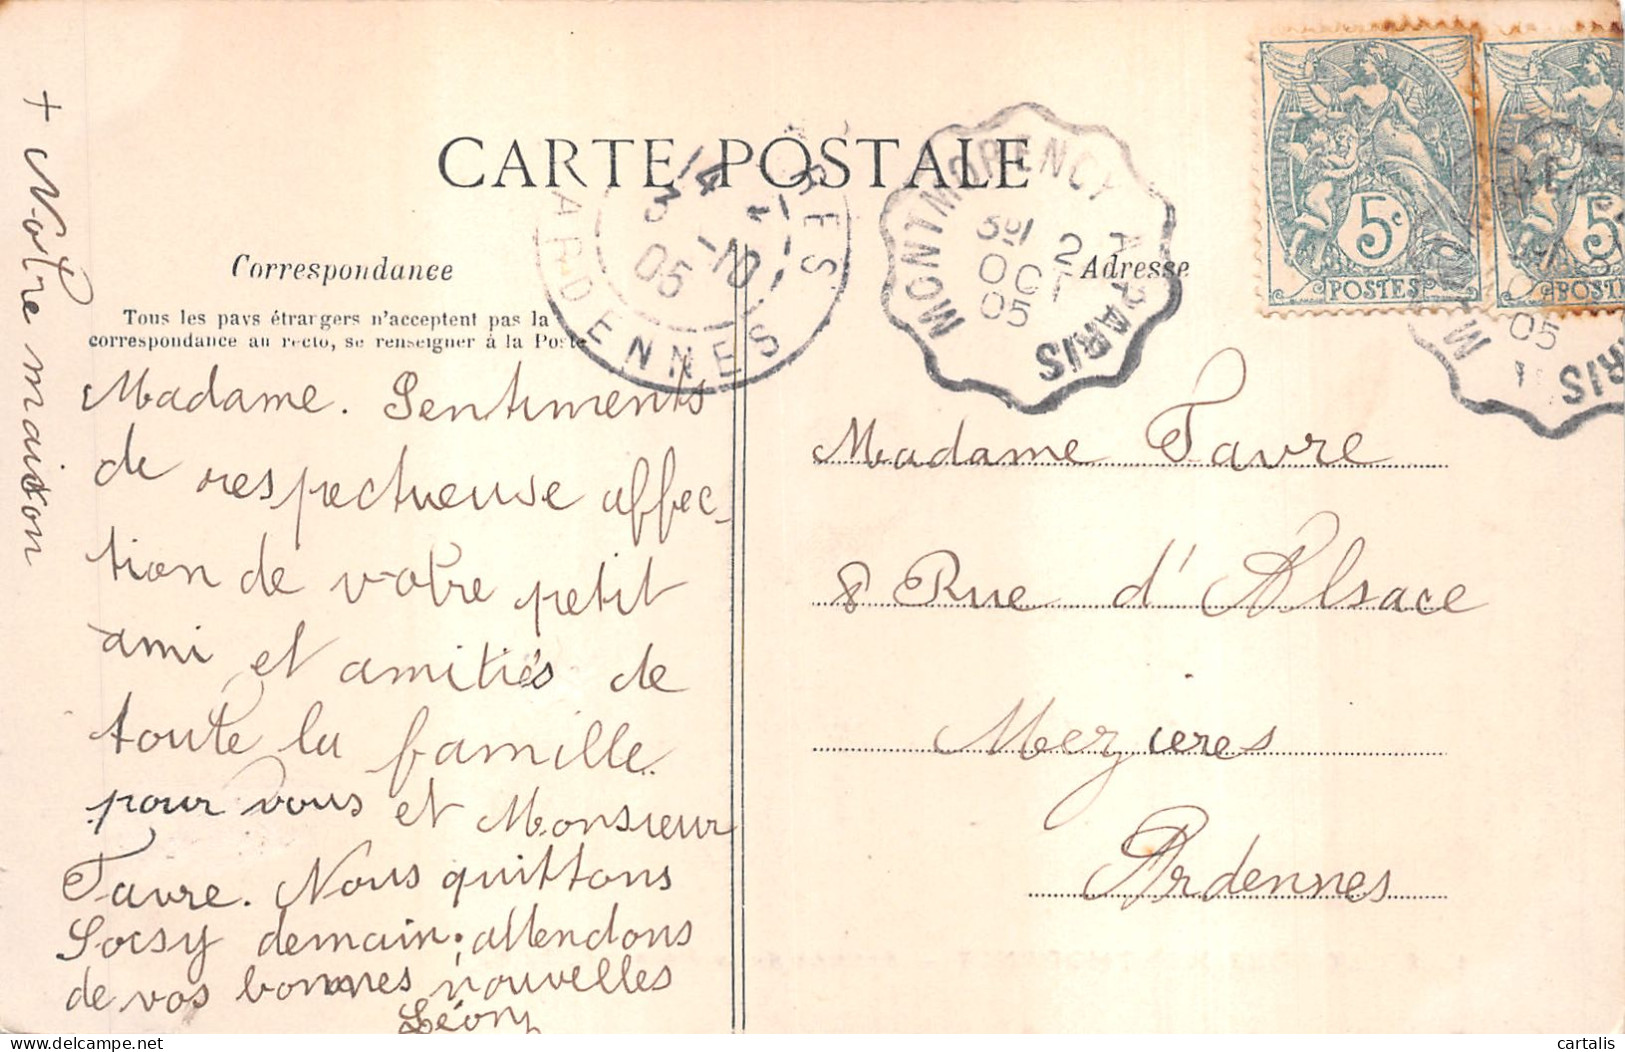 CARTE POSTALE
Correspondance
Tous les pays étrangers n'acceptent pas la
correspondance au recto, se renseigner à la Poste
Adresse
+ Notre maison
Madame. Sentiments
de respectueuse affec-
tion de votre petit
ami et amitiés de
toute la famille
pour vous et Monsieur
Favre. Nous quittons
Soisy demain; attendons
de vos bonnes nouvelles
Léon
Madame Favre
8 Rue d'Alsace
Mezieres
Ardennes
5c
POSTES
5
POST
MONTMORENCY A PARIS
2
OCT
05
ARDENNES
05
PARIS
cartalis
delcampe.net